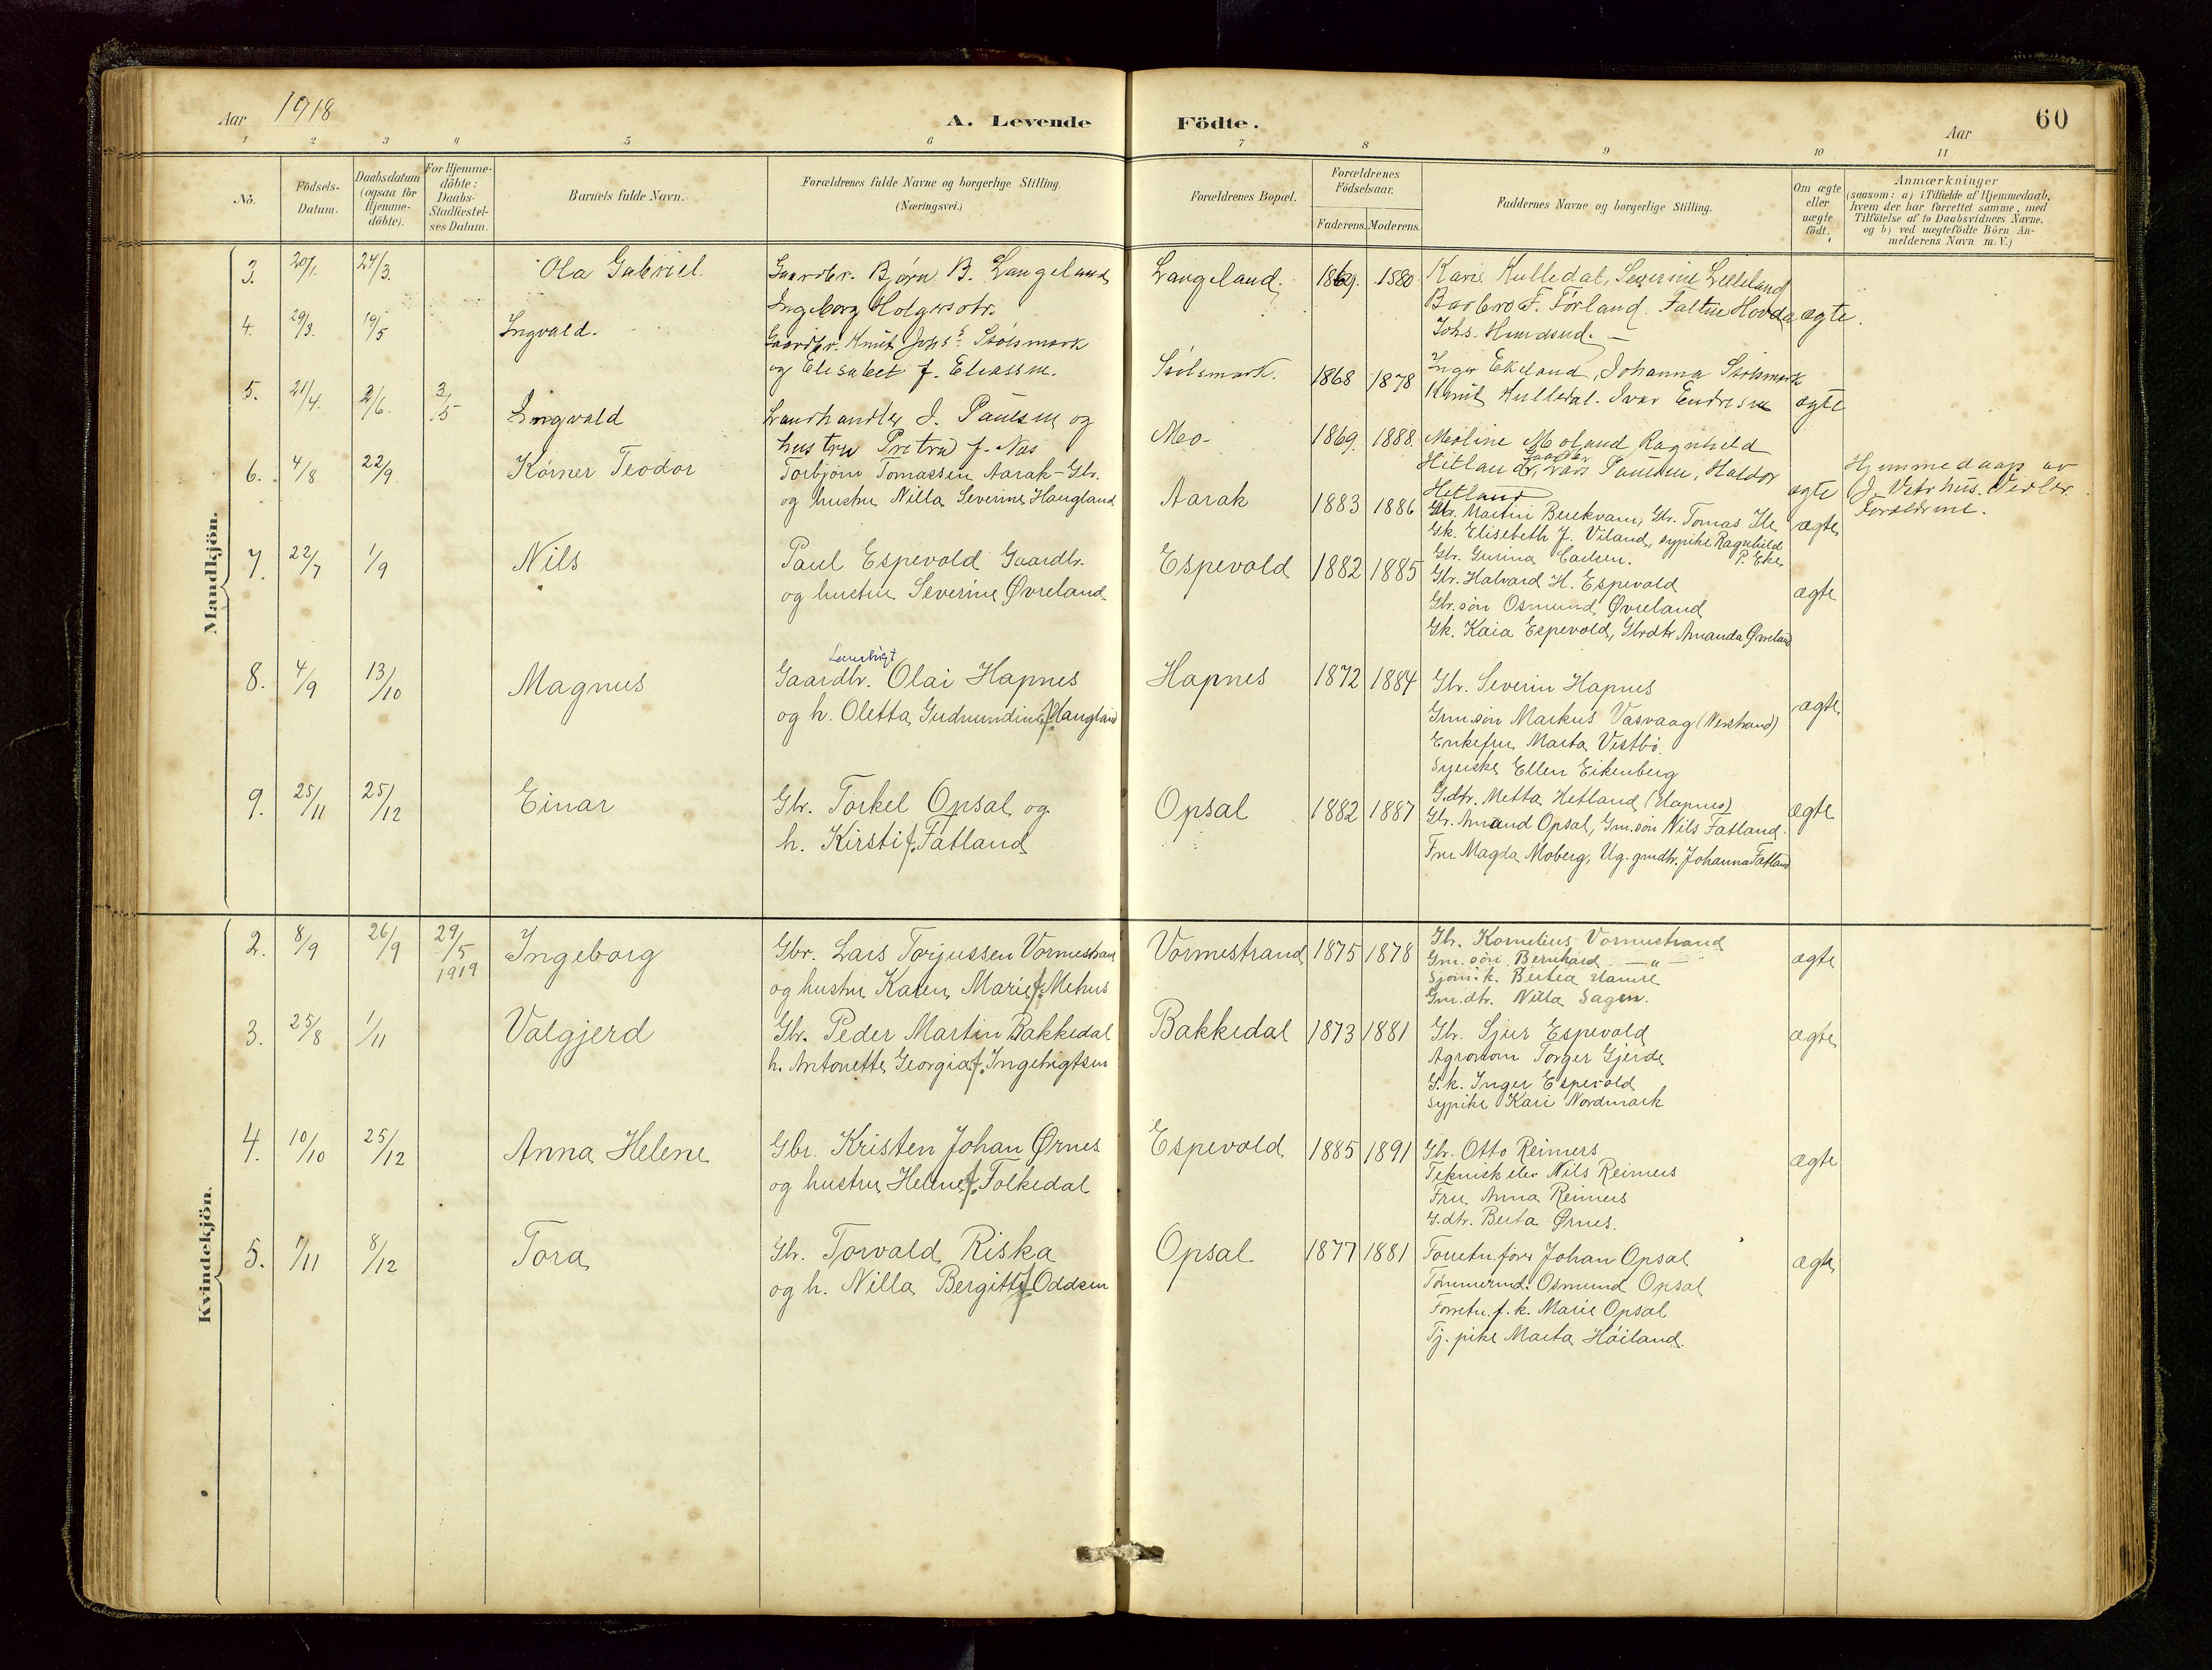 Aar 1918
A. Levende Födte.
Aar
60
1 2 3 4 5 6 7 8 9 10 11
Nö.
Födsels-Datum.
Daabsdatum (ogsaa for Hjemme-döbte).
For Hjemme-döbte: Daabs-Stadfæstel-ses Datum.
Barnets fulde Navn.
Forældrenes fulde Navne og borgerlige Stilling. (Næringsvei.)
Forældrenes Bopæl.
Forældrenes Födselsaar.
Faderens. Moderens.
Faddernes Navne og borgerlige Stilling.
Om ægte eller uægte födt.
Anmærkninger
(saasom: a) i Tilfælde af Hjemmedaab,
hvem der har forrettet samme, med
Tilföielse af to Daabsvidners Navne,
og b) ved uægtefödte Börn An-
melderens Navn m. V.)
Mandkjön.
3. 20/1. 24/3. Ola Gabriel. Gaardbr. Bjørn B. Langeland
Ingeborg Holgersdtr.
Langeland. 1869. 1880
Karis Kulledal, Severine Lilleland
Barbro F. Førland. Faltin Hovda
Johs. Hundsnd. —
ægte.
4. 29/3. 19/5 Ingvald. Gaardbr. Knut Johs. Stølsmark
og Elisabet f. Eliassen.
Stølsmark. 1868 1878
Inger Ekeland, Johanna Stølsmark
Knut Kulledal. Ivar Endresen
ægte
5. 21/4. 2/6. 3/5 Ingvald Landhandler J. Paulsen og
hustru Petra f. Nes
Mo- 1869. 1888.
Meline Moland Ragnhild
Hetland, Lars Paulsen, Haldor
Hetland
ægte
Hjemmedaap av
J. Vetrhus. Vedtr.
Foreldrene.
6. 4/8 22/9 Kørner Teodor Torbjørn Tomassen Aarak - Gbr.
og hustru Nilla Severine Haugland
Aarak 1883 1886
Gbr. Martin Berekvam, Gbr. Tomas Ile
Gk. Elisebeth J. Viland, sypike Ragnhild P. Eke
Gbr. Gurina Carlsen.
ægte
7. 22/7 1/9 Nils Paul Espevold Gaardbr.
og hustru Severine Øvreland
Espevold 1882 1885
Gbr. Halvard H. Espevold
Gbr.søn Osmund Øvreland
Gk. Kaia Espevold, Gbrdtr Amanda Øvreland
ægte
8. 4/9 13/10 Magnus Gaardbr. Olai Hapnes
og h. Oletta Gudmundine f. Haugland
Hapnes 1872 1884
Gbr. Severin Hapnes
Gm.søn Markus Vasvaag (Nerstrand)
Enkefru Marta Vestbø.
Syerske Ellen Eikenberg
G.dtr. Metta Hetland (Hapnes)
ægte
9. 25/11 25/12 Einar Gbr. Torkel Opsal og
h. Kirsti f. Fatland
Opsal 1882 1887
Gbr. Amand Opsal, Gm.søn Nils Fatland.
Fru Magda Moberg, Ug. gmdtr. Johanna Fatland
ægte
Kvindekjön.
2. 8/9 26/9 29/5 1919 Ingeborg Gbr. Lars Torjussen Vormestrand
og hustru Karen Marie f. Mehus
Vormestrand 1875 1878
Gbr. Kornelius Vormestrand
Gm.søn Bernhard — " —
Sjøm.k. Bertea Hamre
Gm.dtr. Nilla Sagen.
ægte
3. 25/8 1/11 Valgjerd Gbr. Peder Martin Bakkedal
h. Antonette Georgia f. Ingebrigtsen
Bakkedal 1873 1881
Gbr. Sjur Espevold
Agronom Torger Gjerde
G.k. Inger Espevold
Sypike Kari Nordmark
ægte
4. 10/10 25/12 Anna Helene Gbr. Kristen Johan Ørnes
og hustru Helene f. Folkedal
Espevold 1885 1891
Gbr. Otto Reimers
Teknisk elev Nils Reimers
Fru Anna Reimers
G.dtr. Berta Ørnes.
ægte
5. 1/11 8/12 Tora Gbr. Torvald Riska
og h. Nilla Bergitte f. Oddsen
Opsal 1877 1881
Forretn.fører Johan Opsal
Tømmermd. Osmund Opsal
Forretn. f. k. Marie Opsal
Tj. pike Marta Høiland.
ægte